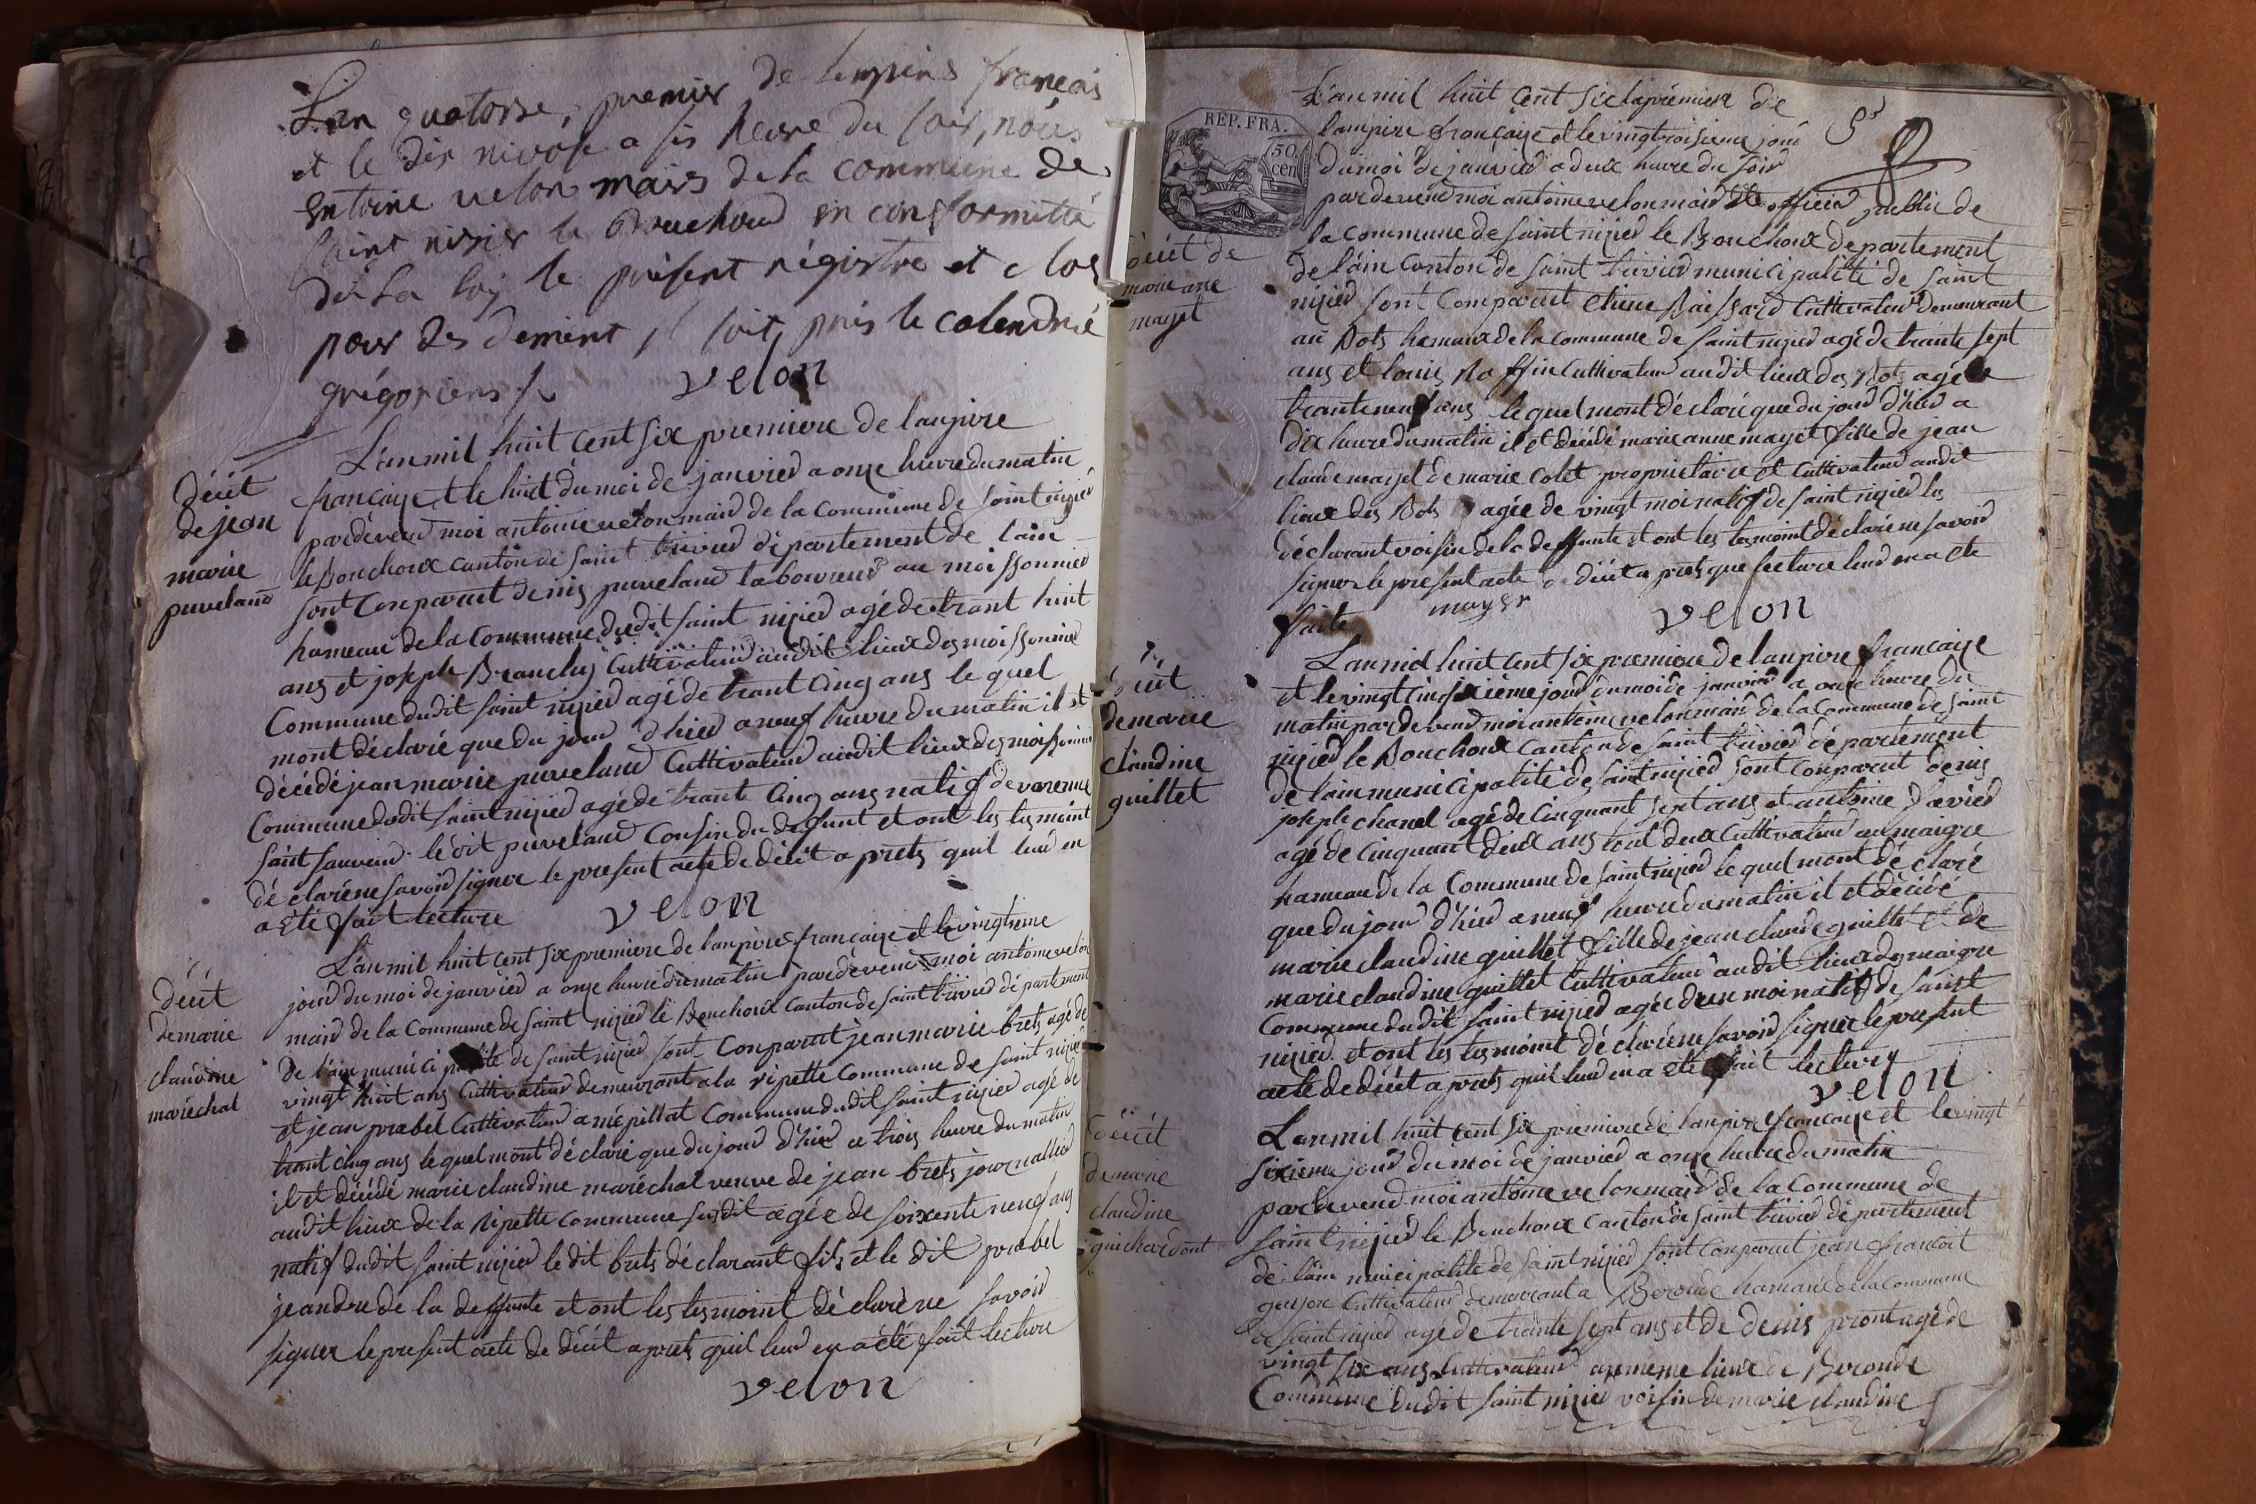 L'an quatorse, premier de lempire français
et le dix nivose a six heure du soir, nous
entoine velon maire de la commune de
saint nizier le Bouchoud en conformitté
de La loy le présent régistre et clos
pour des dement, il soit pris le calendrié
grégoriens
velon
décét
de jean
marie
puveland
L'an mil huit cent six premiere de lanpire
francaize et le huit du moi de janvier a onze heure du matin
pardevend moi antoine velon maire de la commune de saint nizied
le Bouchoux canton de saint trivied département de lain
sont Conparuit denis puveland laboureur au moissonnied
hameau de la Commune dudit saint nizied agé de trant huit
ans et joseph Branchy Cultivateur audit lieux des moissonnied
Commune dudit saint nizied agé de trant cinq ans le quel
mont déclaré que du jour d'hier a neuf heure du matin il et
décédé jean marie puveland Cultivateur audit lieux des moissonnied
Commune dudit saint nizied agé de trante Cinq ans natif de varenne
saint sauveur le dit puveland Cousin du defunt et ont les tesmoint
dé clarène savoir signer le present acte de décét a prets quil leur en
a eté fait lecture velon
décét
de marie
claudine
maréchal
L'an mil huit cent six premiere de lanpire francaize et le vingtieme
jour du moi de janvier a onze heure du matin pardevend moi antoine velon
maire de la Commune de saint nizied le Bouchoux canton de saint trivied département
de l'ain municipalité de saint nizied sont Conparuit jean marie brets agé de
vingt huit ans Cultivateur demeurant a la ripette Commune de saint nizied
et jean prabel Cultivateur a mépillat Commune dudit saint nizied agé de
trant cinq ans le quel mont déclaré que du jour d'hier a trois heure du matin
il et décédé marie claudine maréchal veuve de jean brets journallier
audit lieux de la ripette commune susdit agée de soixente neuf ans
natif dudit saint nizied le dit brets déclarant fils et le dit prabel
jeandre de la deffunte et ont les tesmoint déclarène savoir
signer le present acte de décét a prets quil leur en a eté fait lecture
velon
REP. FRA.
50
cen
décét de
marie ane
mayet
L'an mil huit cent six la prémiere de
lanpire françaize et le vingtroisieme jour
du moi de janvier a deux heure du soir
pardevend moi antoine velon maire et officier public de
la commune de saint nizied le Bouchoux departement
de l'ain Canton de saint trivied municipalité de saint
nizied sont Comparuit Cultivateur demeurant
au Bots hameaux de la commune de saint nizied agé de trante sept
ans et louis Roffin Cultivateur audit lieux des Bots agé de
trante neuf ans le quel mont déclaré que du jour d'hier a
dix heure du matin il et décédé marie anne mayet fille de jean
claude mayet de marie colet proprietaire et Cultivateur audit
lieux des Bots agée de vingt moi natif de saint nizied les
déclarant voisin de la deffunte et ont les tesmoint déclaré ne savoir
signer le present acte de décét a prets que lecture leur en a eté
faite mayer velon
décét
de marie
claudine
guillet
L'an mil huit cent six premiere de lanpire francaize
et le vingt cinqzième jour du moi de janvier a onze heure du
matin pardevend moi antoine velon maire de la Commune de saint
nizied le Bouchoux Canton de saint trivied département
de l'ain municipalité de saint nizied sont conparuit denis
joseph chanel agé de Cinquant sept ans et antoine
agé de Cinquant deux ans tout deux Cultivateur au maigre
hameau de la Commune de saint nizied le quel mont déclaré
que du jour d'hier a neuf heure du matin il et décédé
marie claudine guillet fille de jean claude guillet et de
marie claudine guillet Cultivateur audit lieux des maigre
Commune dudit saint nizied agée d'un moi natif de saint
nizied et ont les tesmoint déclarène savoir signer le present
acte de décét a prets quil leur en a eté fait lecture
velon
décét
de marie
claudine
guichardont
L'an mil huit cent six premiere de lanpire françaize et le vingt
sixieme jour du moi de janvier a onze heure du matin
pardevend moi antoine velon maire de la Commune de
saint nizied le Bouchoux Canton de saint trivied département
de l'ain municipalité de saint nizied sont Conparuit jean francoit
Cultivateur demeurant a Beronde hameau de la Commune
de saint nizied agé de trante sept ans et de denis pront agé de
vingt six ans Cultivateur au meme lieux de Beronde
Commune dudit saint nizied voisin de marie claudine